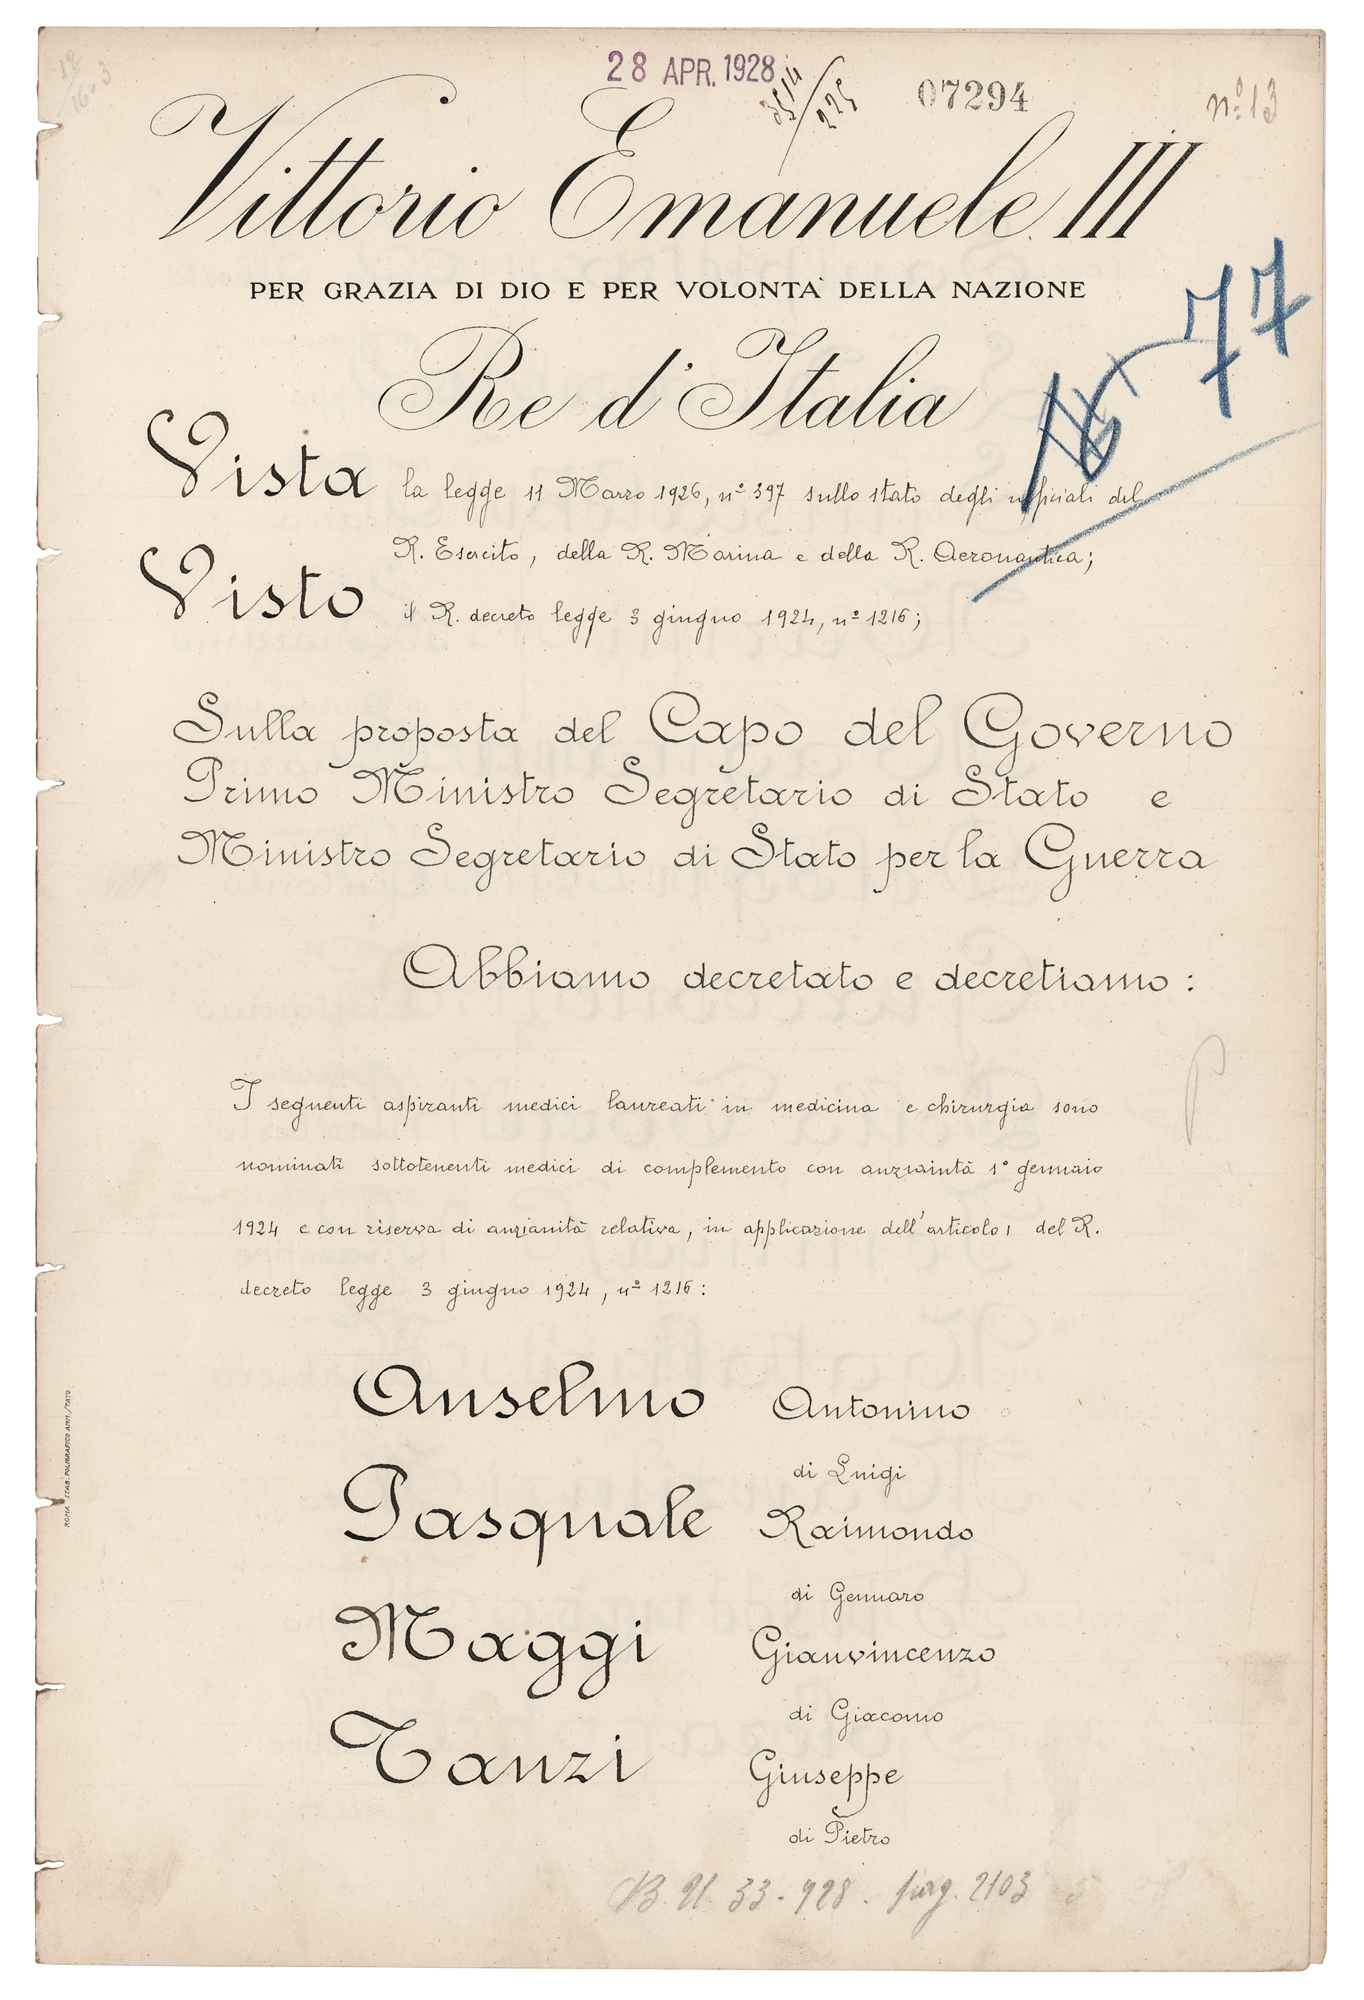 28 APR. 1928
07294
nº 13
Vittorio Emanuele III
PER GRAZIA DI DIO E PER VOLONTA` DELLA NAZIONE
Re d'Italia
16 77
Vista la legge 11 Marzo 1926, nº 397 sullo stato degli ufficiali del
R. Esercito, della R. Marina e della R. Aeronautica;
Visto il R. decreto legge 3 giugno 1924, nº 1216;
Sulla proposta del Capo del Governo
Primo Ministro Segretario di Stato e
Ministro Segretario di Stato per la Guerra
Abbiamo decretato e decretiamo:
I seguenti aspiranti medici laureati in medicina e chirurgia sono
nominati sottotenenti medici di complemento con anziaintà 1° gennaio
1924 e con riserva di anzianità relativa, in applicazione dell'articolo 1 del R.
decreto legge 3 giugno 1924, nº 1216:
Anselmo Antonino
di Luigi
Pasquale Raimondo
di Gennaro
Maggi Gianvincenzo
di Giacomo
Tanzi Giuseppe
di Pietro
B. U. 33 - 928 - pag. 2103
ROMA STAB. POLIGRAFICO AMM. STATO